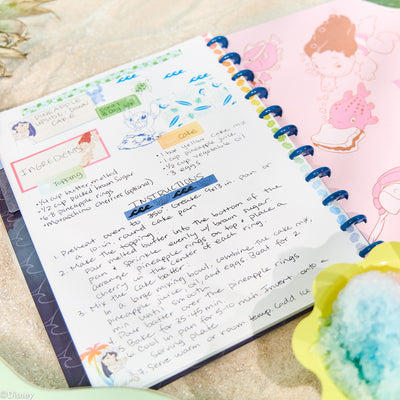 PINEAPPLE
UPSIDE DOWN
CAKE
INGREDIENTS
Topping
- 1/4 cup butter melted
- 1/2 cup packed brown sugar
- 6-8 pineapple rings
- maraschino cherries (optional)
Cake
- 1 box yellow cake mix
- 1 cup pineapple juice
- 1/2 cup vegetable oil
- 3 eggs
INSTRUCTIONS
1. Preheat oven to 350°. Grease 9x13 in. pan or
in. round cake pan
2. Make the topping: into the bottom of the
pan, melted butter
sprinkle evenly w/ brown sugar
arrange pineapple rings on top + place a
cherry in the center of each ring
3. Mix the cake batter:
in a large mixing bowl, combine the cake mix,
pineapple juice, oil, and eggs. Beat for 2
min until smooth
4. Pour batter over the pineapple rings
5. Bake for 35-45 min
6. Cool in pan for 5-10 min, invert onto a
serving plate
7. Serve warm or room temp. (add ice
©Disney